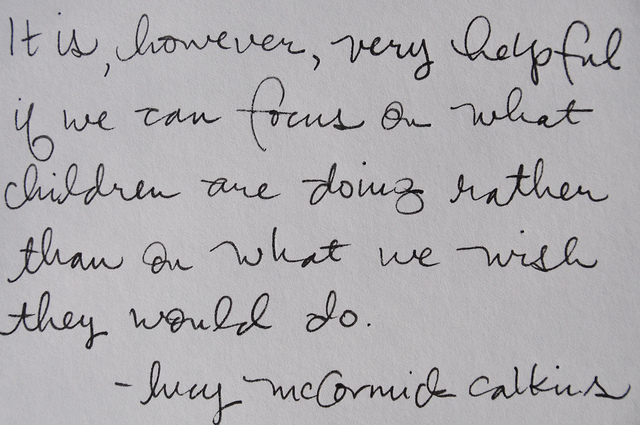 It is, however, very helpful
if we can focus on what
children are doing rather
than on what we wish
they would do.
-Lucy McCormick Calkins